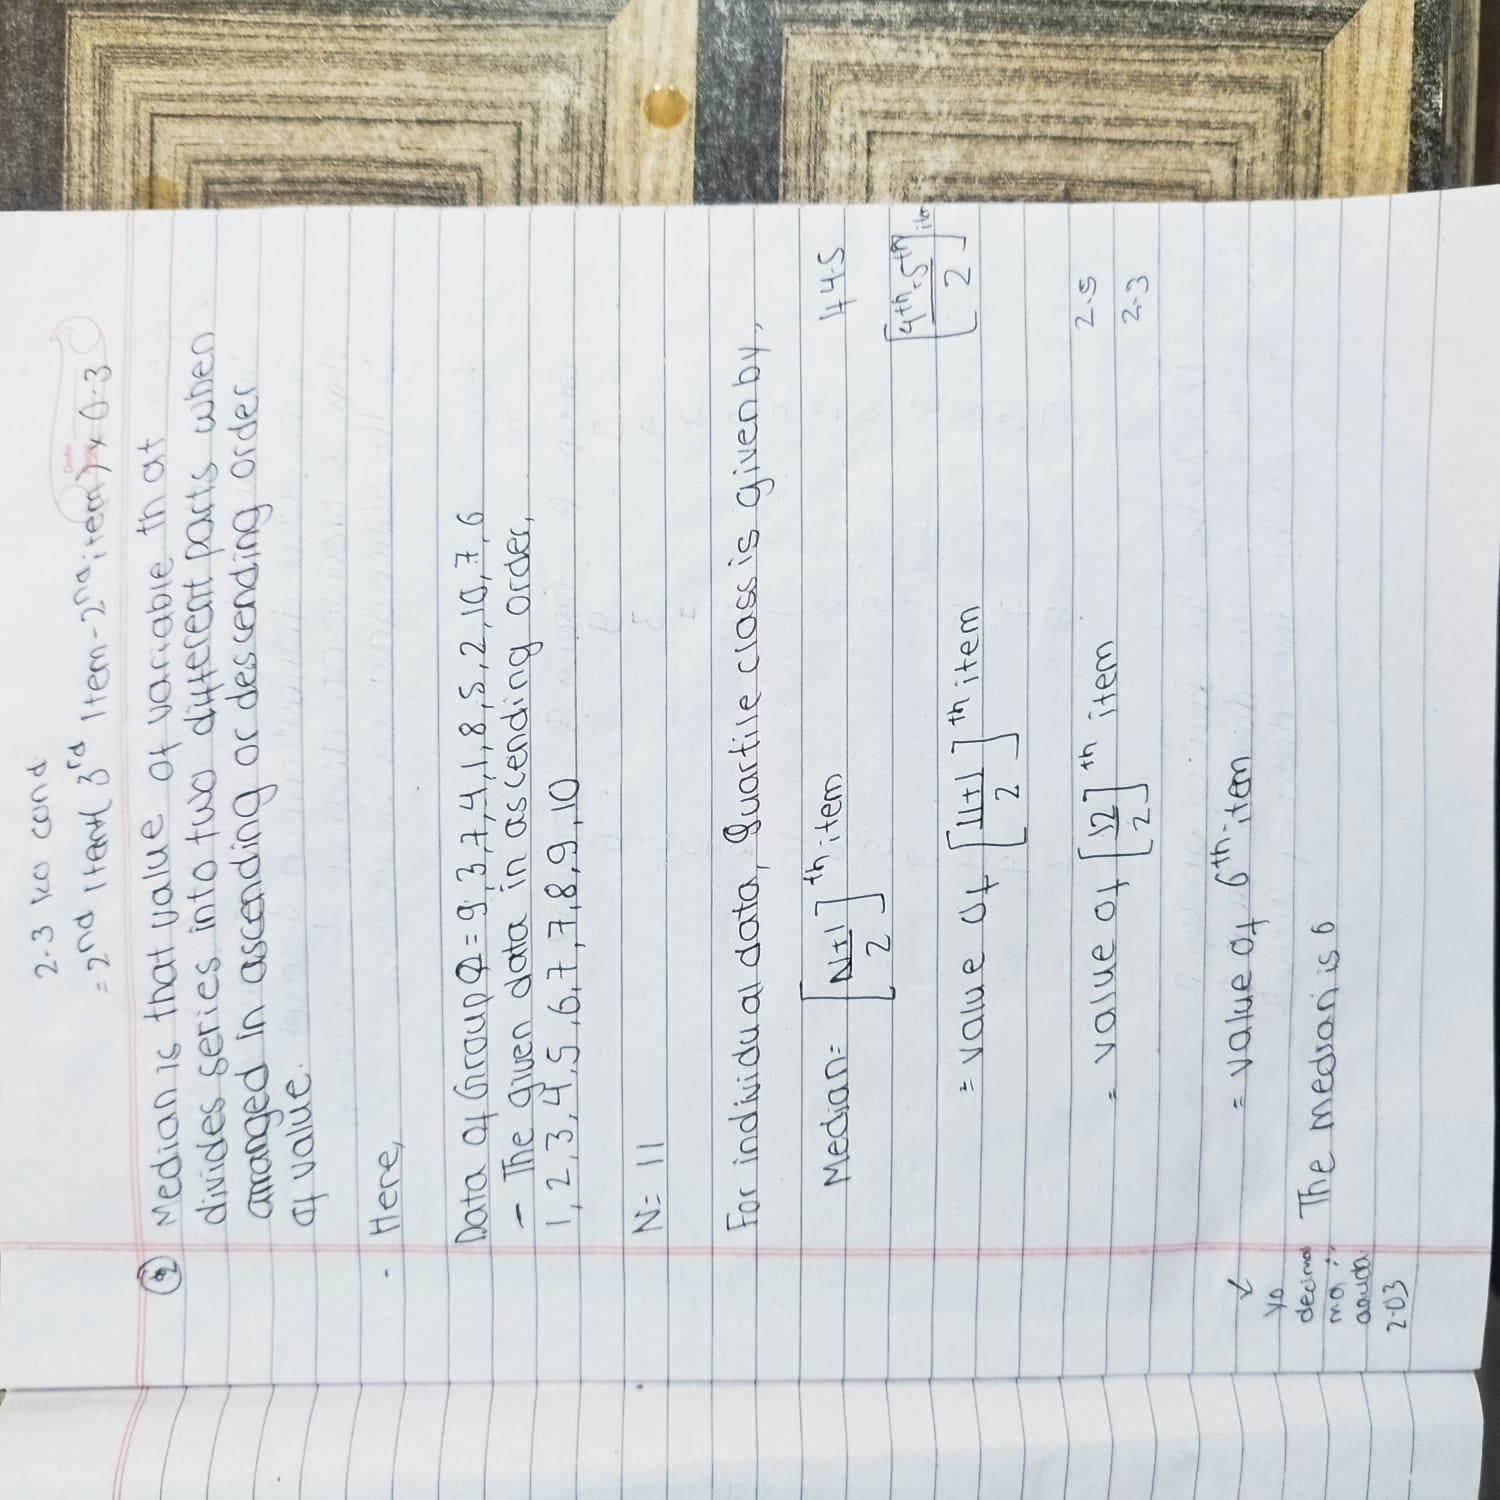 2.3 ko cond
= 2nd Item( 3rd Item - 2nd item) x 0.3
Date
② Median is that value of variable that
divides series into two different parts when
arranged in ascending or descending order
of value.
- Here,
Data of Group Q = 9, 3, 7, 4, 1, 8, 5, 2, 10, 7, 6
- The given data in ascending order,
1, 2, 3, 4, 5, 6, 7, 7, 8, 9, 10
N = 11
For individual data, Quartile class is given by,
Median = [N+1/2]th item
4.5
[4th - 5th/2] item
= value of [11+1/2]th item
= value of [12/2]th item
2.5
2.3
= value of 6th item
The median is 6
yo
decimal
ma
aauda
2.03